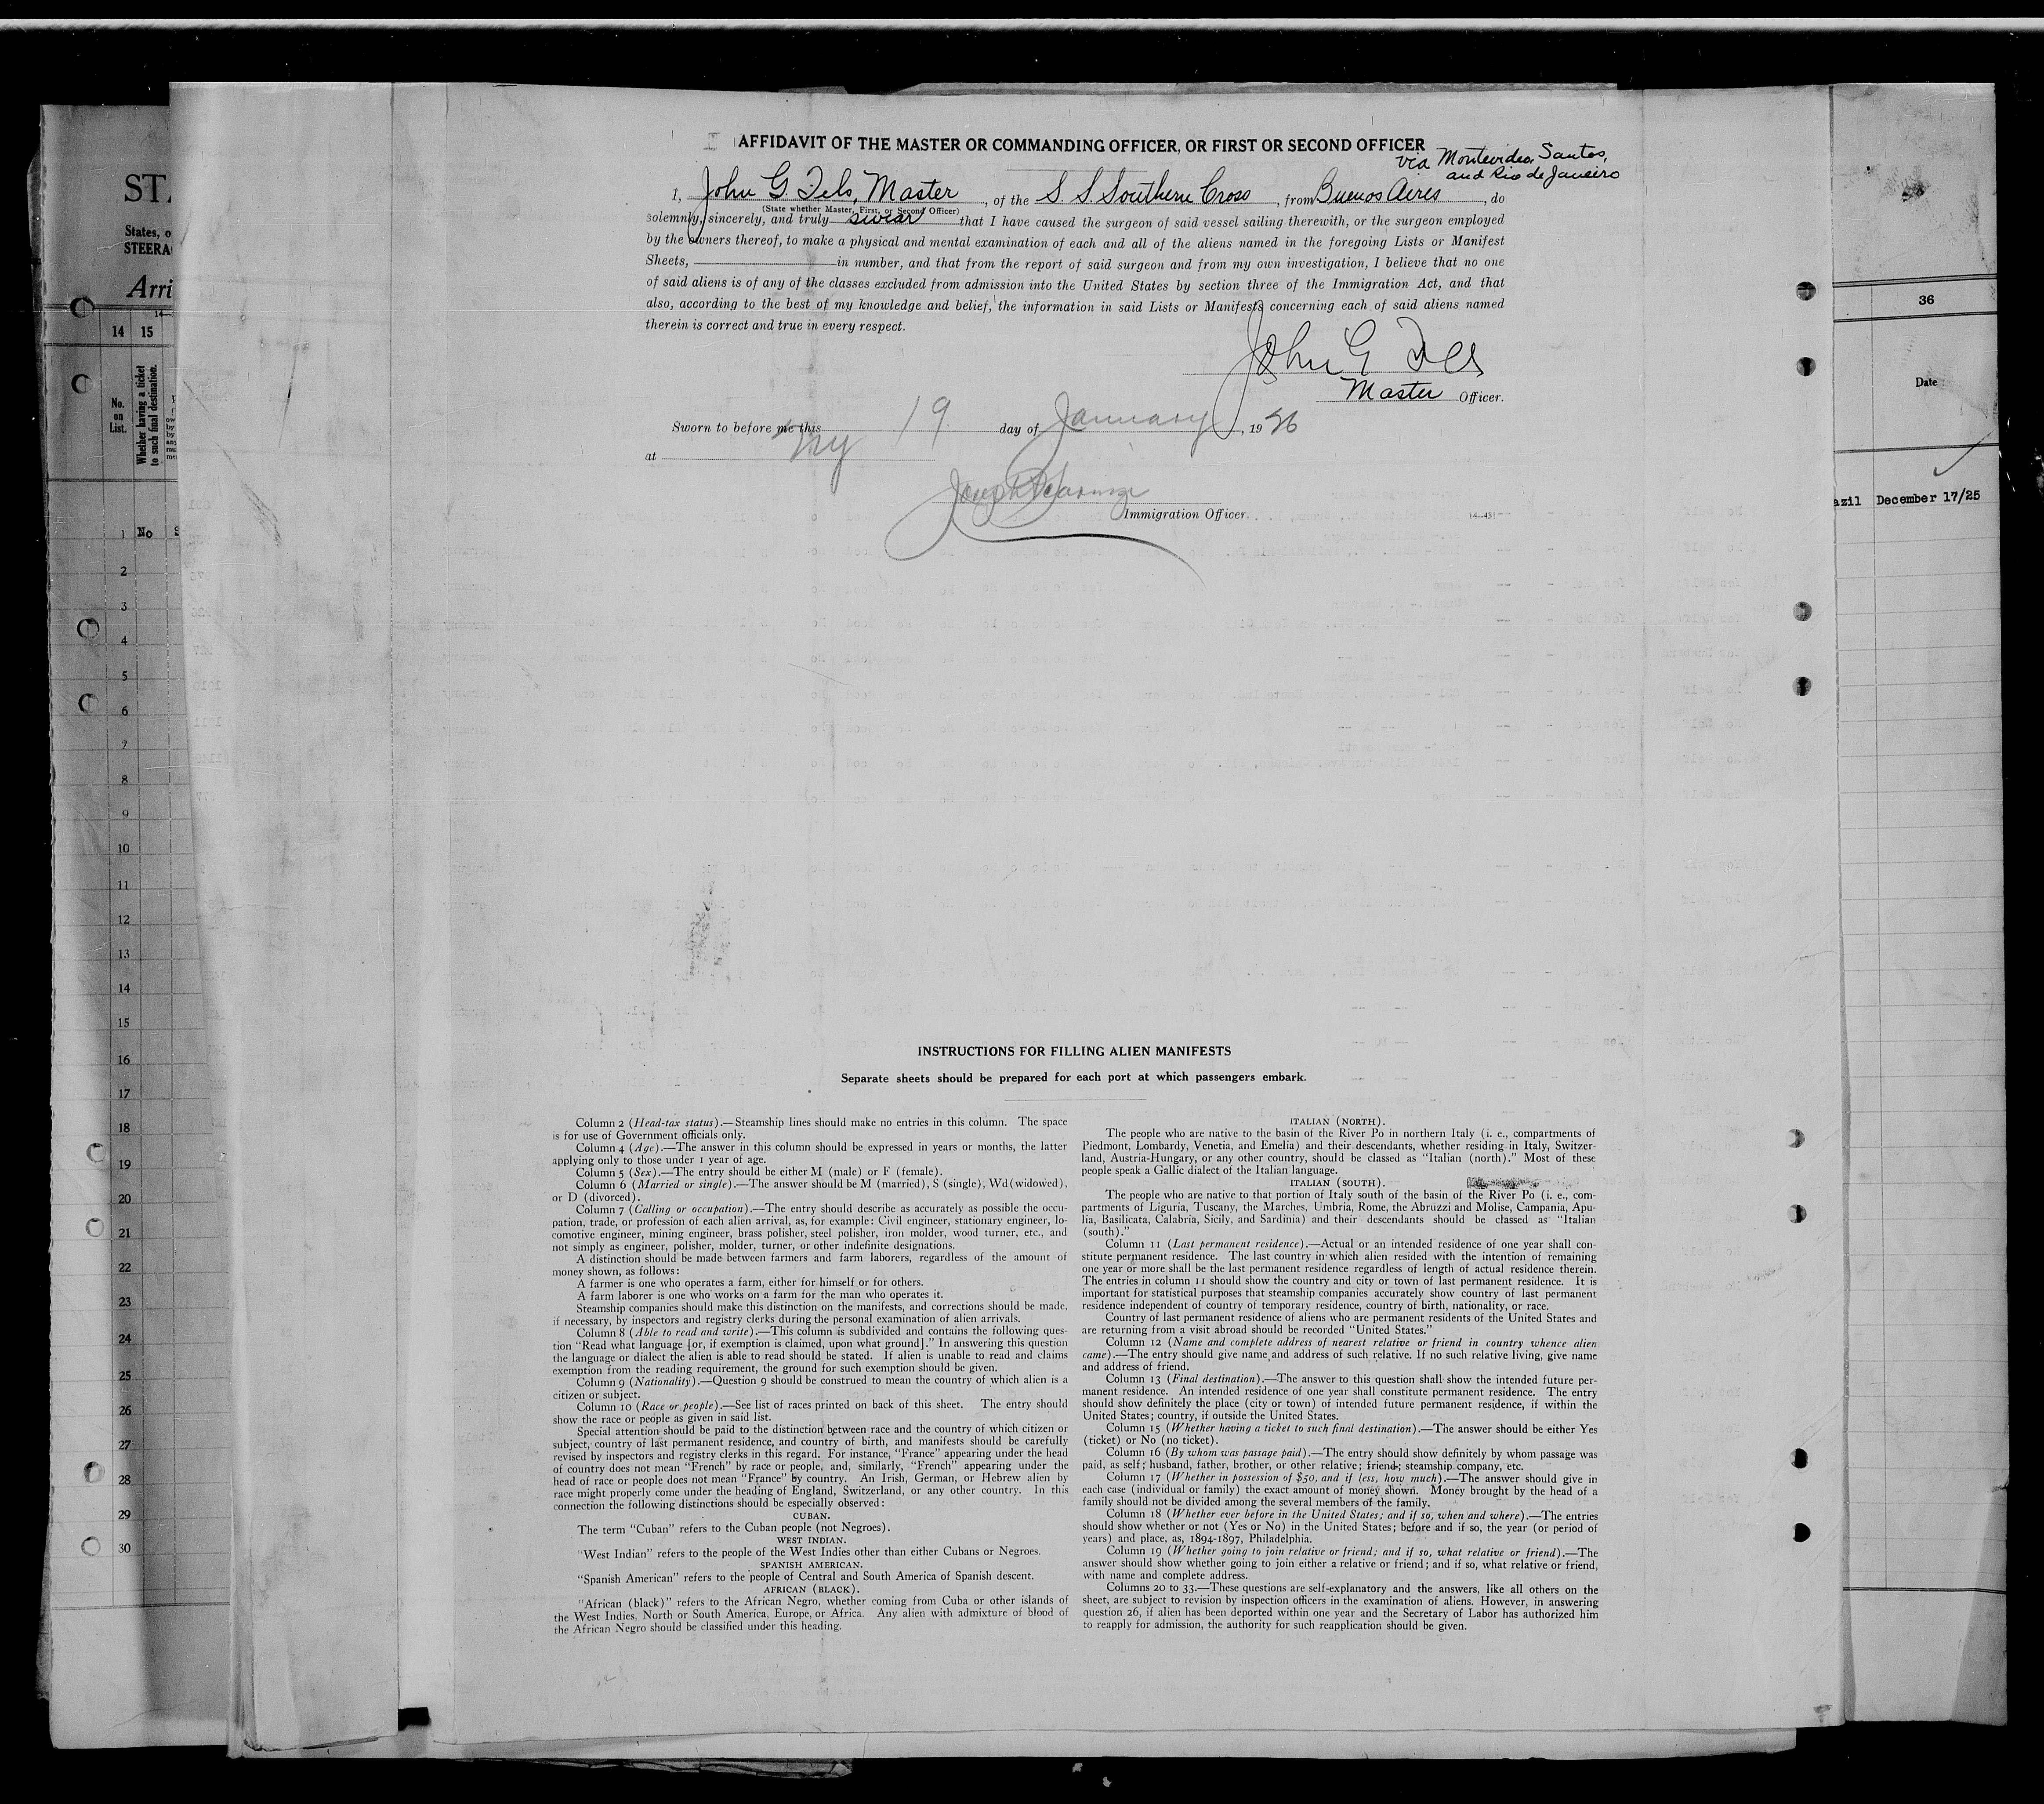 AFFIDAVIT OF THE MASTER OR COMMANDING OFFICER, OR FIRST OR SECOND OFFICER
via Montevideo, Santos,
and Rio de Janeiro
I, John G. Fels, Master, of the S. S. Southern Cross, from Buenos Aires, do
(State whether Master, First, or Second Officer)
solemnly, sincerely, and truly swear that I have caused the surgeon of said vessel sailing therewith, or the surgeon employed
by the owners thereof, to make a physical and mental examination of each and all of the aliens named in the foregoing Lists or Manifest
Sheets, in number, and that from the report of said surgeon and from my own investigation, I believe that no one
of said aliens is of any of the classes excluded from admission into the United States by section three of the Immigration Act, and that
also, according to the best of my knowledge and belief, the information in said Lists or Manifests concerning each of said aliens named
therein is correct and true in every respect.
John G Fels
Master Officer.
Sworn to before me this 19 day of January, 1926
at NY
Immigration Officer.
14—451
INSTRUCTIONS FOR FILLING ALIEN MANIFESTS
Separate sheets should be prepared for each port at which passengers embark.
Column 2 (Head-tax status).—Steamship lines should make no entries in this column. The space
is for use of Government officials only.
Column 4 (Age).—The answer in this column should be expressed in years or months, the latter
applying only to those under 1 year of age.
Column 5 (Sex).—The entry should be either M (male) or F (female).
Column 6 (Married or single).—The answer should be M (married), S (single), Wd (widowed),
or D (divorced).
Column 7 (Calling or occupation).—The entry should describe as accurately as possible the occu-
pation, trade, or profession of each alien arrival, as, for example: Civil engineer, stationary engineer, lo-
comotive engineer, mining engineer, brass polisher, steel polisher, iron molder, wood turner, etc., and
not simply as engineer, polisher, molder, turner, or other indefinite designations.
A distinction should be made between farmers and farm laborers, regardless of the amount of
money shown, as follows:
A farmer is one who operates a farm, either for himself or for others.
A farm laborer is one who works on a farm for the man who operates it.
Steamship companies should make this distinction on the manifests, and corrections should be made,
if necessary, by inspectors and registry clerks during the personal examination of alien arrivals.
Column 8 (Able to read and write).—This column is subdivided and contains the following ques-
tion "Read what language [or, if exemption is claimed, upon what ground]." In answering this question
the language or dialect the alien is able to read should be stated. If alien is unable to read and claims
exemption from the reading requirement, the ground for such exemption should be given.
Column 9 (Nationality).—Question 9 should be construed to mean the country of which alien is a
citizen or subject.
Column 10 (Race or people).—See list of races printed on back of this sheet. The entry should
show the race or people as given in said list.
Special attention should be paid to the distinction between race and the country of which citizen or
subject, country of last permanent residence, and country of birth, and manifests should be carefully
revised by inspectors and registry clerks in this regard. For instance, "France" appearing under the head
of country does not mean "French" by race or people, and, similarly, "French" appearing under the
head of race or people does not mean "France" by country. An Irish, German, or Hebrew alien by
race might properly come under the heading of England, Switzerland, or any other country. In this
connection the following distinctions should be especially observed:
CUBAN.
The term "Cuban" refers to the Cuban people (not Negroes).
WEST INDIAN.
"West Indian" refers to the people of the West Indies other than either Cubans or Negroes.
SPANISH AMERICAN.
"Spanish American" refers to the people of Central and South America of Spanish descent.
AFRICAN (BLACK).
"African (black)" refers to the African Negro, whether coming from Cuba or other islands of
the West Indies, North or South America, Europe, or Africa. Any alien with admixture of blood of
the African Negro should be classified under this heading.
ITALIAN (NORTH).
The people who are native to the basin of the River Po in northern Italy (i. e., compartments of
Piedmont, Lombardy, Venetia, and Emelia) and their descendants, whether residing in Italy, Switzer-
land, Austria-Hungary, or any other country, should be classed as "Italian (north)." Most of these
people speak a Gallic dialect of the Italian language.
ITALIAN (SOUTH).
The people who are native to that portion of Italy south of the basin of the River Po (i. e., com-
partments of Liguria, Tuscany, the Marches, Umbria, Rome, the Abruzzi and Molise, Campania, Apu-
lia, Basilicata, Calabria, Sicily, and Sardinia) and their descendants should be classed as "Italian
(south)."
Column 11 (Last permanent residence).—Actual or an intended residence of one year shall con-
stitute permanent residence. The last country in which alien resided with the intention of remaining
one year or more shall be the last permanent residence regardless of length of actual residence therein.
The entries in column 11 should show the country and city or town of last permanent residence. It is
important for statistical purposes that steamship companies accurately show country of last permanent
residence independent of country of temporary residence, country of birth, nationality, or race.
Country of last permanent residence of aliens who are permanent residents of the United States and
are returning from a visit abroad should be recorded "United States."
Column 12 (Name and complete address of nearest relative or friend in country whence alien
came).—The entry should give name and address of such relative. If no such relative living, give name
and address of friend.
Column 13 (Final destination).—The answer to this question shall show the intended future per-
manent residence. An intended residence of one year shall constitute permanent residence. The entry
should show definitely the place (city or town) of intended future permanent residence, if within the
United States; country, if outside the United States.
Column 15 (Whether having a ticket to such final destination).—The answer should be either Yes
(ticket) or No (no ticket).
Column 16 (By whom was passage paid).—The entry should show definitely by whom passage was
paid, as self; husband, father, brother, or other relative; friend; steamship company, etc.
Column 17 (Whether in possession of $50, and if less, how much).—The answer should give in
each case (individual or family) the exact amount of money shown. Money brought by the head of a
family should not be divided among the several members of the family.
Column 18 (Whether ever before in the United States; and if so, when and where).—The entries
should show whether or not (Yes or No) in the United States; before and if so, the year (or period of
years) and place, as, 1894-1897, Philadelphia.
Column 19 (Whether going to join relative or friend; and if so, what relative or friend).—The
answer should show whether going to join either a relative or friend; and if so, what relative or friend,
with name and complete address.
Columns 20 to 33.—These questions are self-explanatory and the answers, like all others on the
sheet, are subject to revision by inspection officers in the examination of aliens. However, in answering
question 26, if alien has been deported within one year and the Secretary of Labor has authorized him
to reapply for admission, the authority for such reapplication should be given.
STA
States, o
STEERA
Arri
14 15
No.
on
List.
Whether having a ticket
to such final destination.
1 No S
2
3
4
5
6
7
8
9
10
11
12
13
14
15
16
17
18
19
20
21
22
23
24
25
26
27
28
29
30
36
Date
azil December 17/25